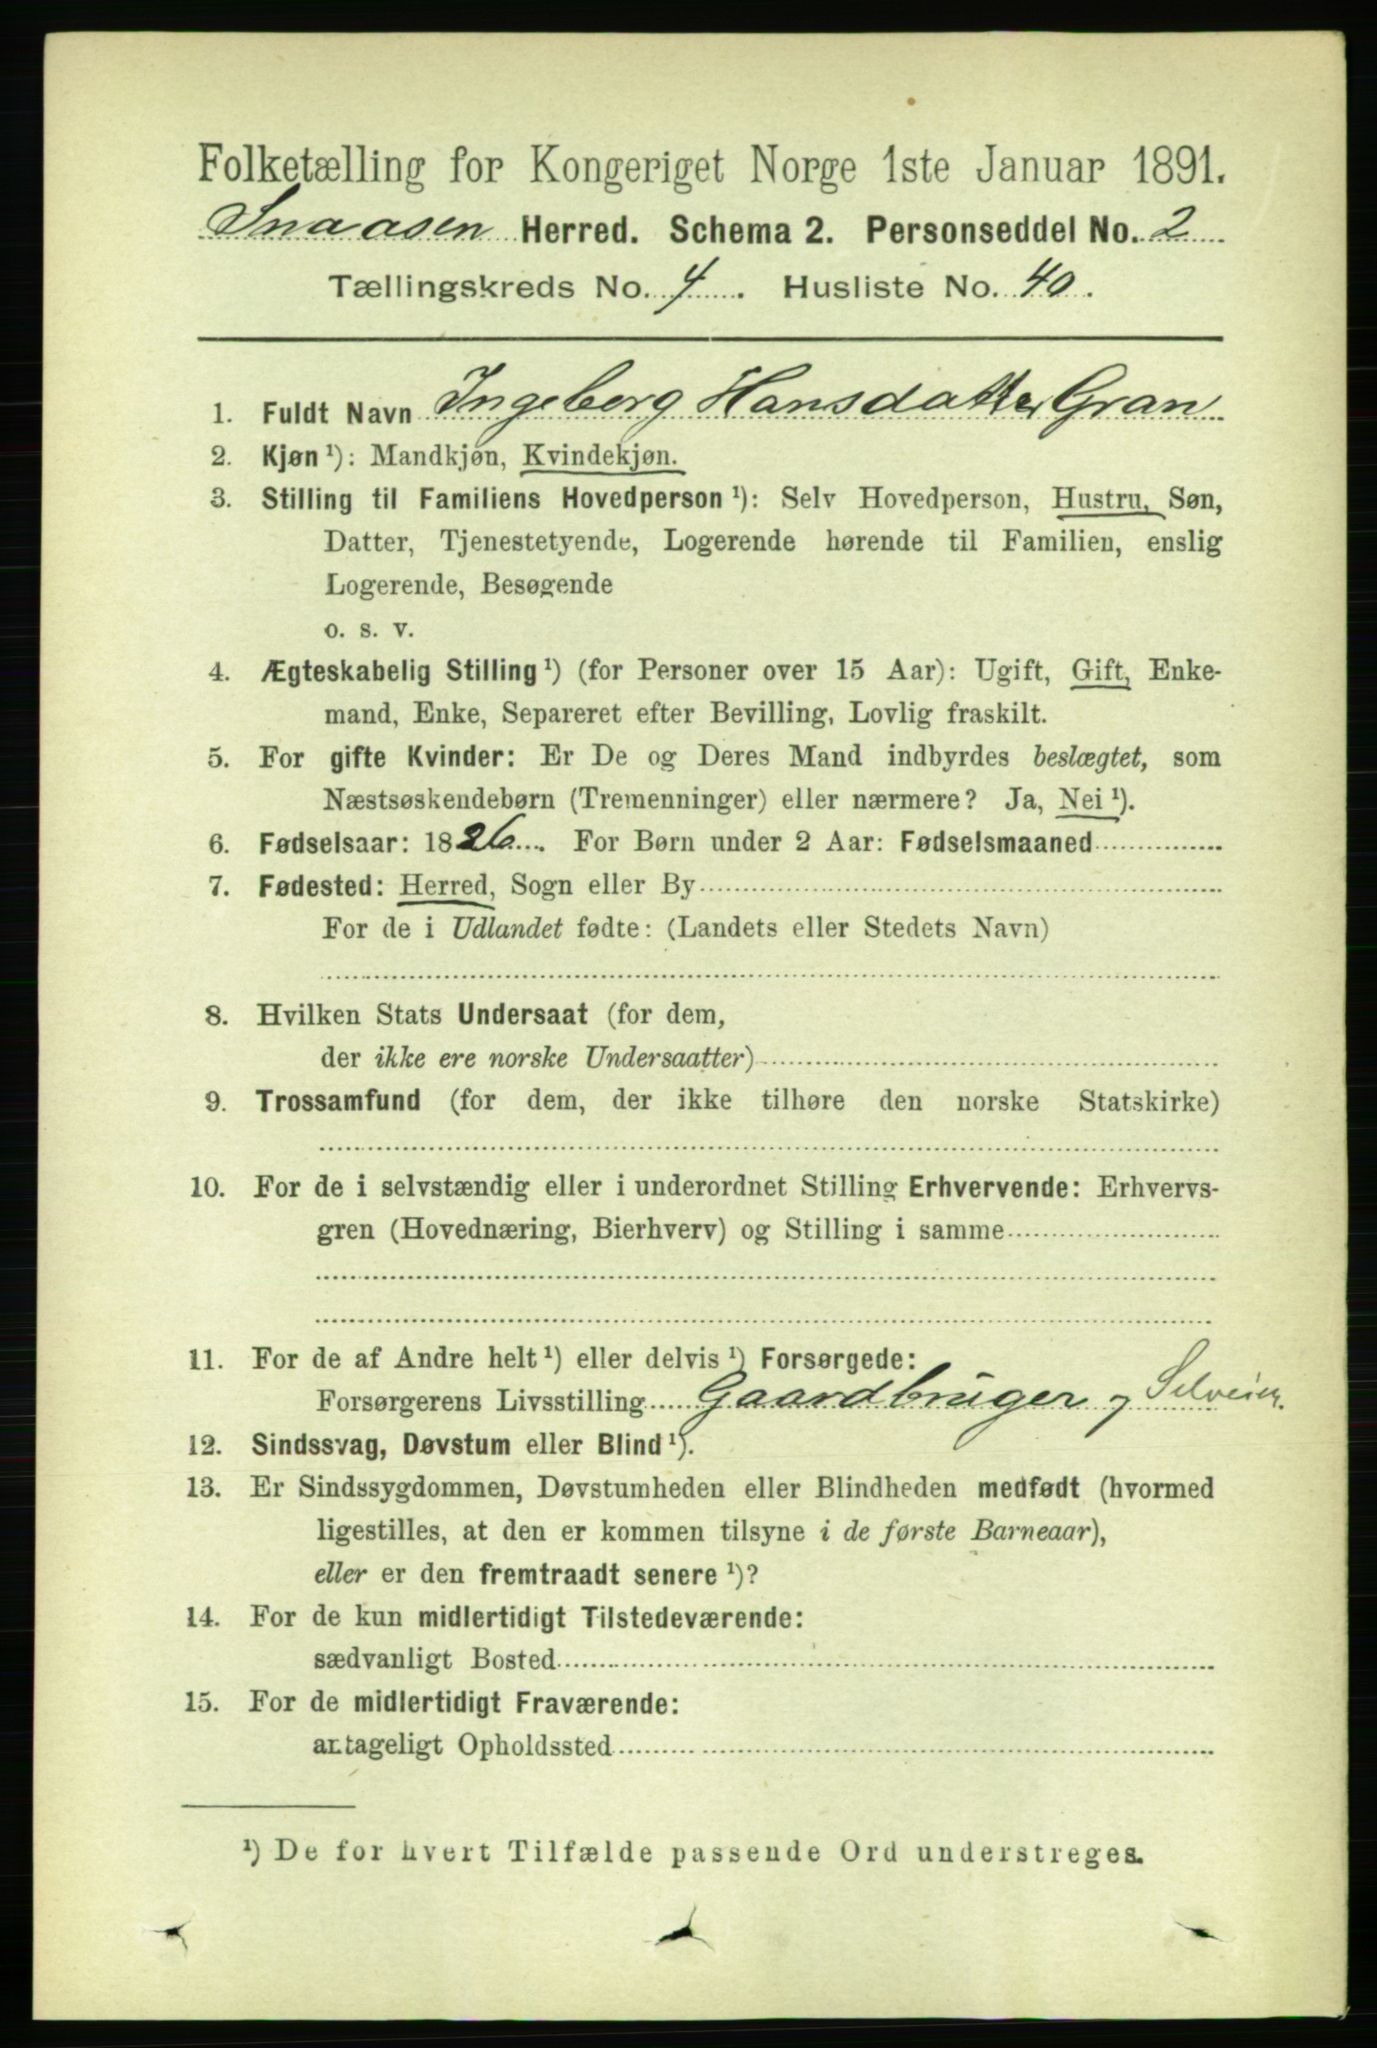 Folketælling for Kongeriget Norge 1ste Januar 1891.
Snaasen Herred. Schema 2. Personseddel No. 2
Tællingskreds No. 4. Husliste No. 40.
1. Fuldt Navn Ingeberg Hansdatter Gran
2. Kjøn¹): Mandkjøn, Kvindekjøn.
3. Stilling til Familiens Hovedperson¹): Selv Hovedperson, Hustru, Søn,
Datter, Tjenestetyende, Logerende hørende til Familien, enslig
Logerende, Besøgende
o. s. v.
4. Ægteskabelig Stilling¹) (for Personer over 15 Aar): Ugift, Gift, Enke-
mand, Enke, Separeret efter Bevilling, Lovlig fraskilt.
5. For gifte Kvinder: Er De og Deres Mand indbyrdes beslægtet, som
Næstsøskendebørn (Tremenninger) eller nærmere? Ja, Nei¹).
6. Fødselsaar: 1826. For Børn under 2 Aar: Fødselsmaaned
7. Fødested: Herred, Sogn eller By
For de i Udlandet fødte: (Landets eller Stedets Navn)
8. Hvilken Stats Undersaat (for dem,
der ikke ere norske Undersaatter)
9. Trossamfund (for dem, der ikke tilhøre den norske Statskirke)
10. For de i selvstændig eller i underordnet Stilling Erhvervende: Erhvervs-
gren (Hovednæring, Bierhverv) og Stilling i samme
11. For de af Andre helt¹) eller delvis¹) Forsørgede:
Forsørgerens Livsstilling Gaardbruger og Selveier.
12. Sindssvag, Døvstum eller Blind¹).
13. Er Sindssygdommen, Døvstumheden eller Blindheden medfødt (hvormed
ligestilles, at den er kommen tilsyne i de første Barneaar),
eller er den fremtraadt senere¹)?
14. For de kun midlertidigt Tilstedeværende:
sædvanligt Bosted
15. For de midlertidigt Fraværende:
antageligt Opholdssted
¹) De for hvert Tilfælde passende Ord understreges.